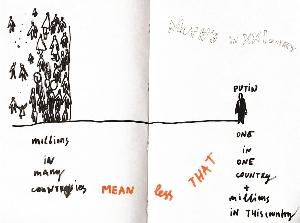 PUTIN
millions
in
many
countries
MEAN less THAT
ONE
IN
ONE
COUNTRY
+
millions
IN THIS COUNTRY